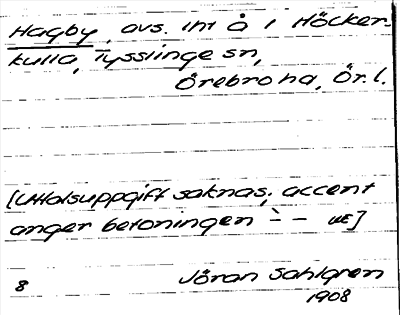 Hagby, avs. int å 1 Höcker-
kulla, Tysslinge sn,
Örebro hd, Ör. l.
[Uttalsuppgift saknas; accent
anger betoningen `- - WE]
Jöran Sahlgren
1908
8